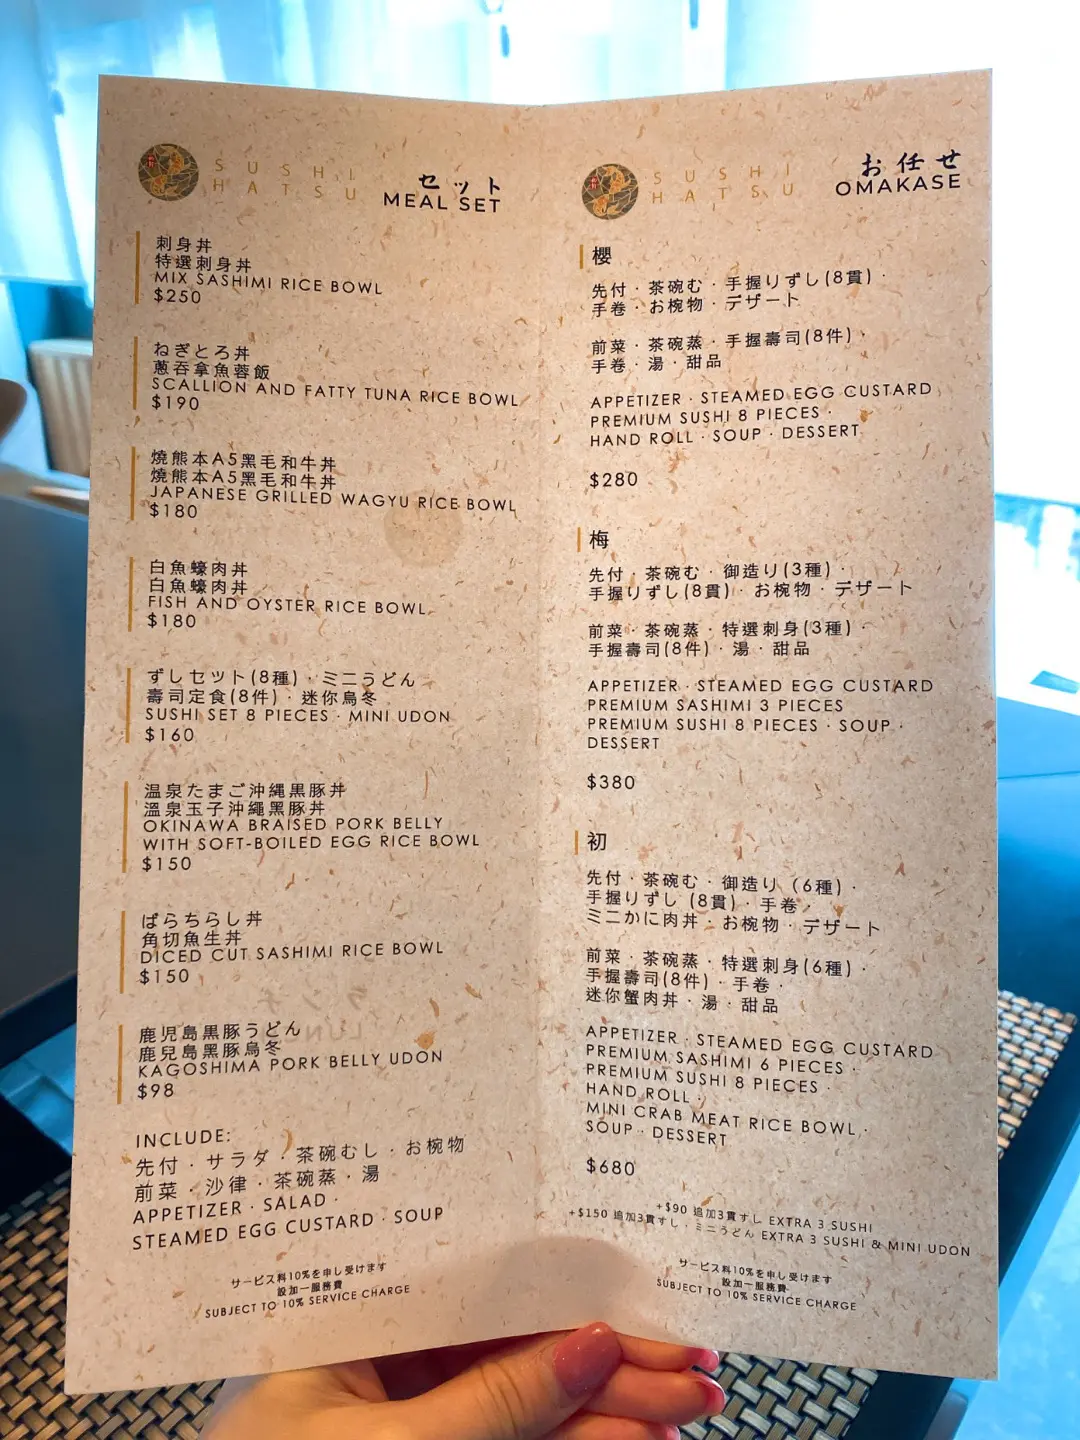 SUSHI
HATSU
セット
MEAL SET
刺身丼
特選刺身丼
MIX SASHIMI RICE BOWL
$250
ねぎとろ丼
蔥吞拿魚蓉飯
SCALLION AND FATTY TUNA RICE BOWL
$190
燒熊本A5黑毛和牛丼
燒熊本A5黑毛和牛丼
JAPANESE GRILLED WAGYU RICE BOWL
$180
白魚蠔肉丼
白魚蠔肉丼
FISH AND OYSTER RICE BOWL
$180
ずしセット(8種)・ミニうどん
壽司定食(8件)・迷你烏冬
SUSHI SET 8 PIECES · MINI UDON
$160
温泉たまご沖縄黒豚丼
溫泉玉子沖繩黑豚丼
OKINAWA BRAISED PORK BELLY
WITH SOFT-BOILED EGG RICE BOWL
$150
ばらちらし丼
角切魚生丼
DICED CUT SASHIMI RICE BOWL
$150
鹿児島黒豚うどん
鹿兒島黑豚烏冬
KAGOSHIMA PORK BELLY UDON
$98
INCLUDE:
先付・サラダ・茶碗むし・お椀物
前菜・沙律・茶碗蒸・湯
APPETIZER · SALAD ·
STEAMED EGG CUSTARD · SOUP
サービス料10%を申し受けます
設加一服務費
SUBJECT TO 10% SERVICE CHARGE
SUSHI
HATSU
お任せ
OMAKASE
櫻
先付・茶碗む・手握りずし(8貫)・
手卷・お椀物・デザート
前菜・茶碗蒸・手握壽司(8件)・
手卷・湯・甜品
APPETIZER · STEAMED EGG CUSTARD
PREMIUM SUSHI 8 PIECES ·
HAND ROLL · SOUP · DESSERT
$280
梅
先付・茶碗む・御造り(3種)・
手握りずし(8貫)・お椀物・デザート
前菜・茶碗蒸・特選刺身(3種)・
手握壽司(8件)・湯・甜品
APPETIZER · STEAMED EGG CUSTARD
PREMIUM SASHIMI 3 PIECES
PREMIUM SUSHI 8 PIECES · SOUP ·
DESSERT
$380
初
先付・茶碗む・御造り（6種）・
手握りずし (8貫)・手卷・
ミニかに肉丼・お椀物・デザート
前菜・茶碗蒸・特選刺身(6種)・
手握壽司(8件)・手卷・
迷你蟹肉丼・湯・甜品
APPETIZER · STEAMED EGG CUSTARD
PREMIUM SASHIMI 6 PIECES ·
PREMIUM SUSHI 8 PIECES ·
HAND ROLL ·
MINI CRAB MEAT RICE BOWL ·
SOUP · DESSERT
$680
+$90 追加3貫すし EXTRA 3 SUSHI
+$150 追加3貫すし・ミニうどん EXTRA 3 SUSHI & MINI UDON
サービス料10%を申し受けます
設加一服務費
SUBJECT TO 10% SERVICE CHARGE